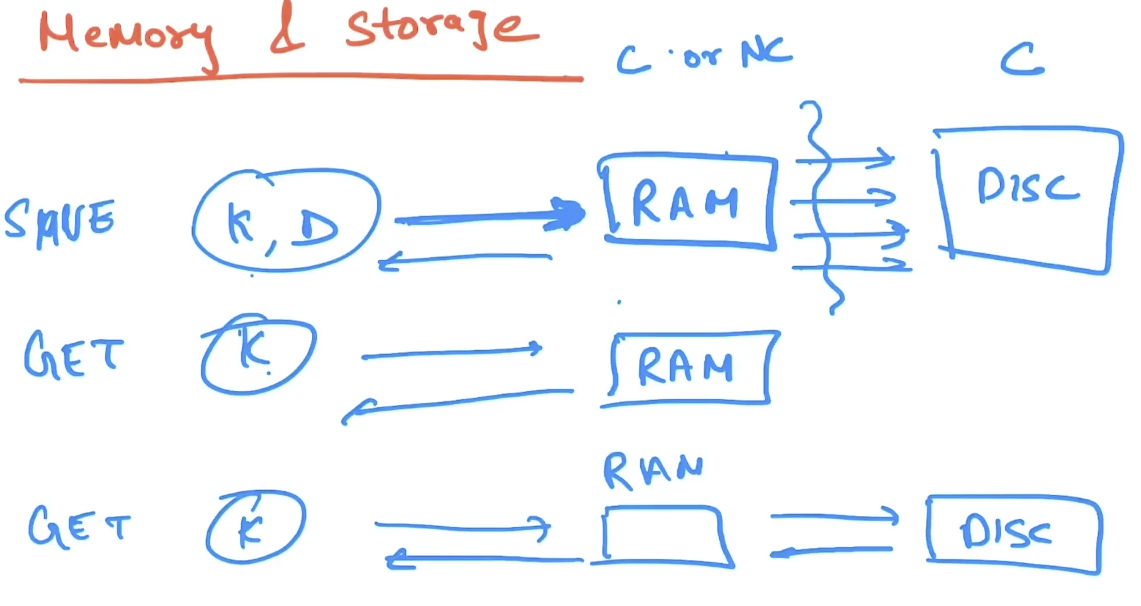 Memory & Storage
C or NC
C
SAVE
K, D
RAM
DISC
GET
K
RAM
RAM
GET
K
DISC